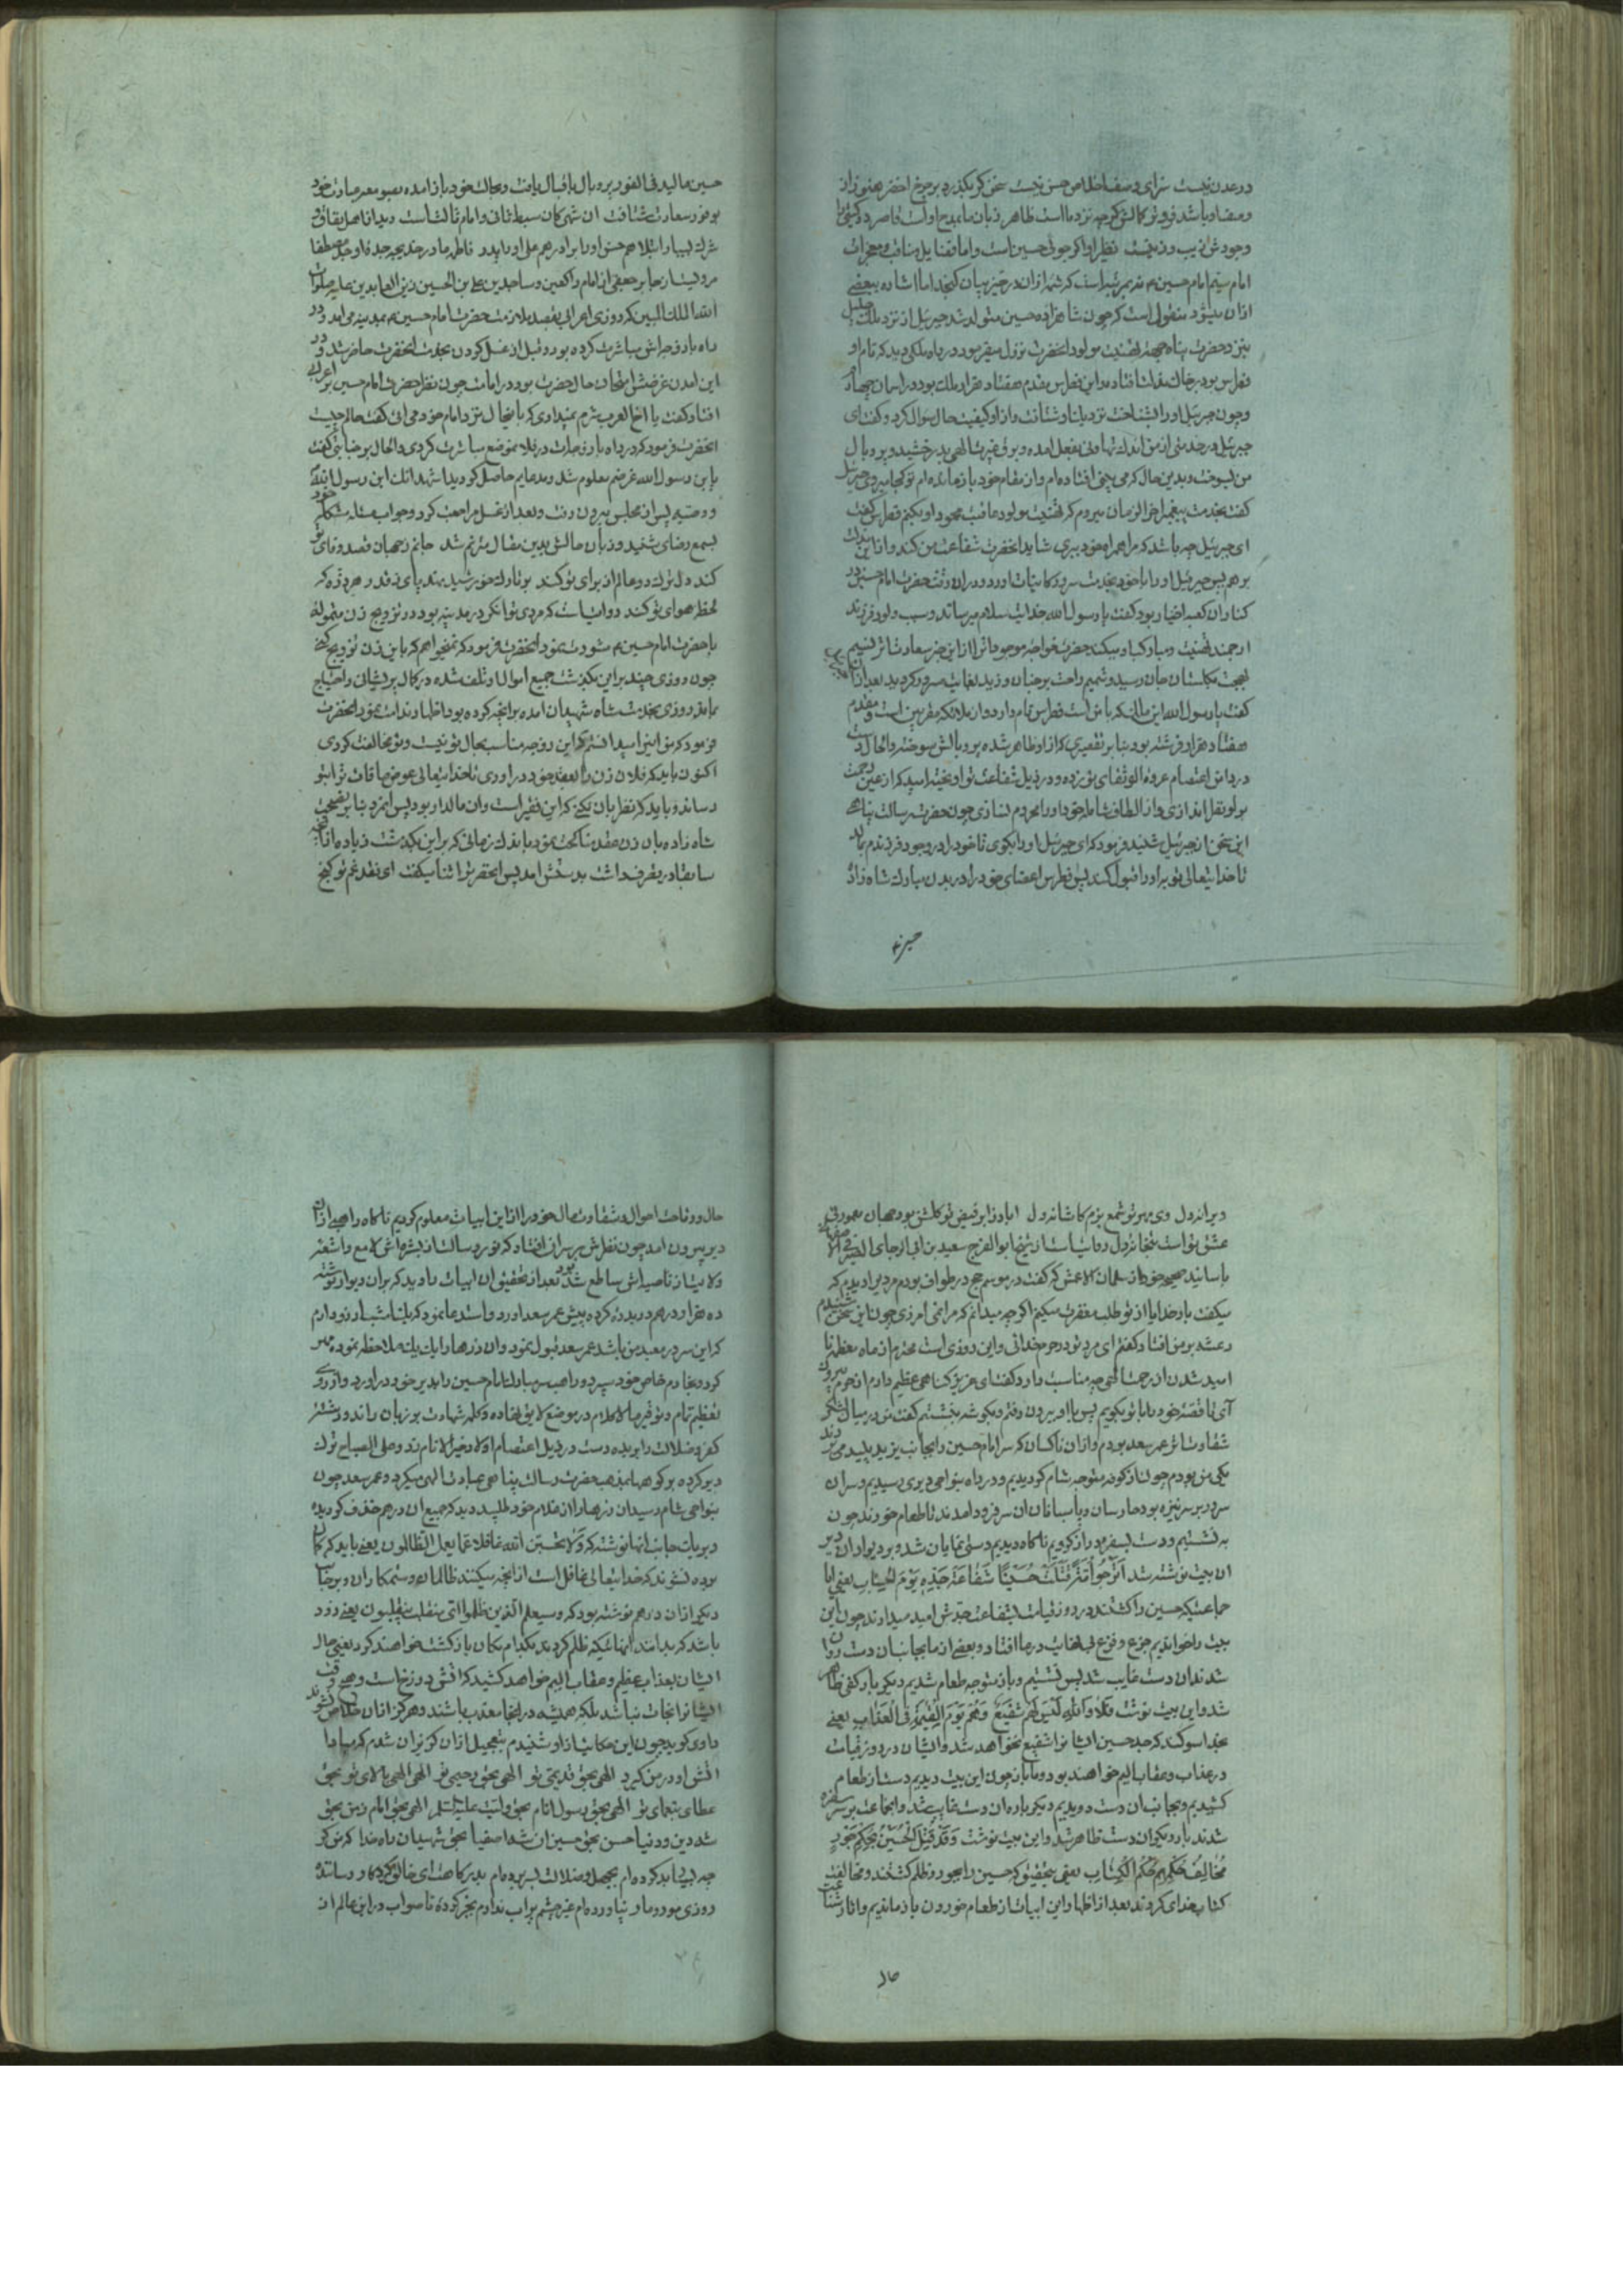 در عدن نیست سزای وصف اخلاص حسن نیست سخن کر بکذرد برچرخ اخضر هنوز از
وصف او باشد فروتر کمالش کرچه نزد ما است ظاهر زبان ما بمدح اوست قاصر
وجودش زیب و زینت نظیر او اکر جوئی حسین است و اما فضایل و مناقب و معجزات
امام سیم امام حسین بمرتبه است که شمه ازان در حیز بیان کنجد اما اشاره ببعضی
ازان میشود منقول است که چون شاهزاده حسین متولد شد جبرئیل از نزد ملک جلیل
بنزد حضرت پناه جهة تهنیت مولود انحضرت نزول میفرمود در راه ملکی دید که نام او
فطرس بود بر خاک مذلت افتاده و این فطرس مقدم هفتاد هزار ملک بود در اسمان چهارم
و چون جبرئیل اورا بشناخت نزدیک او شتافت و از او کیفیت حال سوال کرد و گفت ای
جبرئیل در خدمتی از من اندک تهاونی بفعل امده و برق غیرت الهی بدرخشید و پر و بال
من بسوخت و بدین حال که می بینی افتاده ام و از مقام خود باز مانده ام تو کجا میروی جبرئیل
کفت بخدمت پیغمبر اخر الزمان میروم که تهنیت مولود عاقبت محمود او بکنم فطرس کفت
ای جبرئیل چه باشد که مرا همراه خود ببری شاید انحضرت شفاعت من کند و از این
برهم پس جبرئیل اورا با خود بخدمت سرور کاینات اورد و دران وقت حضرت امام حسین در
کنار ان کعبه اخیار بود کفت یا رسول الله خدایت سلام میرساند و بسبب ولود فرزند
ارجمند تهنیت و مبارکباد میکند حضرت خواجه موجودات را از این خبر سعادت اثر نسیم
بهجت بکلستان جان رسید و شمیم راحت بر جنان وزید بغایت مسرور کردید بعد ازان
کفت یا رسول الله این ملک که با من است فطرس نام دارد و از ملائکه مقربین است و مقدم
هفتاد هزار فرشته بود بنا بر تقصیری که از او ظاهر شده پر و بالش سوخته و الحال دست
در دامن اعتصام عروة الوثقای تو زده و در ذیل شفاعت تو اویخته امید که از عین رحمت
بر او نظر اندازی و از الطاف شامله خود اورا محروم نسازی چون حضرت رسالت پناه
این سخن از جبرئیل شنید فرمود که ای جبرئیل اورا بکوی تا خود را در وجود فرزندم بمالد
تا خدایتعالی توبه اورا قبول کند پس فطرس اعضای خود را در بدن مبارک شاه زاده
حسین
حسین مالید فی الفور پر و بال باقبال یافت و بحالت خود باز امده بصومعه عبادت خود
بوفور سعادت شتافت ان شهی کان سبط ثانی و امام ثالث است
شرک لیها را بتلا هم حسن اورا برادر هم علی اورا پدر فاطمه مادر خدیجه جده و جد مصطفا
مرویست از جابر جعفی از امام راکعین و ساجدین علی بن الحسین زین العابدین علیه صلوات
الله الملک المبین که روزی اعرابی بقصد ملازمت حضرت امام حسین بمدینه می امد و در
راه با زوجه اش مباشرت کرده بود و قبل از غسل کردن بخدمت انحضرت حاضر شد و در
این امدن غرضش امتحان حال حضرت بود در امامت چون نظر حضرت امام حسین بر اعرابی
افتاد کفت یا اخا العرب شرم نمیداری که باینحال نزد امام خود می ائی کفت حالم چیست
انحضرت فرمود که در راه با زوجات در فلان موضع مباشرت کردی و الحال بر جنابتی کفت
یابن رسول الله غرضم معلوم شد و مدعایم حاصل کردید اشهد انک ابن رسول الله
و وصیه پس از مجلس بیرون رفت و بعد از غسل مراجعت کرد و جواب مسئله مشکله خود
بسمع رضای شنید و زبان حالش بدین مقال مترنم شد جانم ز جهان قصد وفای تو
کند دل ترک دو عالم از برای تو کند بر تارک خورشید نهد پای ز قدر هر ذره که
لحظه هوای تو کند روایتست که مردی توانکر در مدینه بود در تزویج زن متموله
با حضرت امام حسین مشورت نمود انحضرت فرمود که نمیخواهم که با این زن تزویج کنی
چون روزی چند بر این بکذشت جمیع اموال او تلف شده در کمال پریشانی و احتیاج
بماند روزی بخدمت شاه شهیدان امده بر انچه کرده بود اظهار ندامت نمود انحضرت
فرمود که من این را میدانستم که این زوجه مناسب بحال تو نیست و تو مخالفت کردی
اکنون باید که فلان زن را بعقد خود دراوردی تا خدایتعالی عوض مافات ترا بتو
رساند و باید که نظر بان نکنی که این فقیر است و ان مالدار بود پس انمرد بنا بر نصیحت
شاه زاده بان زن عقد مناکحت نمود باندک زمانی که بر این بکذشت زیاده از انچه
سابقا در تصرف داشت بدستش امد پس انحقر ترا ثنا میکفت ای نقد غم تو کنج
ویرانه دل وی مهر تو شمع بزم کاشانه دل اباد ز ابر فیض تو کلشن بود جهان معمور ز
عشق تو است بتخانه دل روایتست از شیخ ابو الفرج سعید بن ابی الرجای الصیرفی الاصفهانی
باسانید صحیحه خود از سلمان الاعمش که کفت در موسم حج در طواف بودم مردیرا دیدم که
میکفت بار خدایا از تو طلب مغفرت میکنم اکرچه میدانم که مرا نمی امرزی چون این سخن شنیدم
رعشه بر من افتاد کفتم ای مرد تو در حرم خدائی و این روزی است محترم از ماه معظم نا
امید شدن از رحمت الهی چه مناسبت دارد کفت ای عزیز کناهی عظیم دارم از حرم بیرون
آی تا قصه خود را با تو بکویم پس با او بیرون رفتم و بکوشه بنشستیم کفت من در میان لشکر
شقاوت اثر عمر سعد بودم و از ان ناکسان که سر امام حسین را بجانب یزید پلید می بردند
یکی من بودم چون از کوفه متوجه شام کردیدیم و در راه بنواحی دیری رسیدیم و سر ان
سرور بر سر نیزه بود حارسان و پاسبانان ان سر فرود امدند تا طعام خورند چون
بنشستیم و دست بسفره دراز کردیم ناکاه دیدیم دستی نمایان شد و بر دیوار ان دیر
ان بیت نوشته شد اَتَرْجُوا اُمَّةٌ قَتَلَتْ حُسَیْنًا شَفَاعَةَ جَدِّهِ یَوْمَ الْحِسَابِ یعنی ایا
جماعتیکه حسین را کشتند در روز قیامت بشفاعت جدش امید میدارند چون این
بیت را خواندیم جزع و فزع بی نهایت در ما افتاد و بعضی از ما بجانب ان دست روان
شدند ان دست غایب شد پس نشستیم و باز متوجه طعام شدیم دیکر بار کفی ظاهر
شد و این بیت نوشت فَلَا وَاللهِ لَیْسَ لَهُمْ شَفِیعٌ وَهُمْ یَوْمَ الْقِیٰمَةِ فِی الْعَذَابِ یعنی
بخدا سوکند که جد حسین ایشانرا شفیع نخواهد شد و ایشان در روز قیامت
در عذاب و عقاب الیم خواهند بود و ما باز چون این بیت دیدیم دست از طعام
کشیدیم و بجانب ان دست دویدیم دیکر باره ان دست غایب شد و انجماعت بر سر سفره
شدند بار دیکر ان دست ظاهر شد و این بیت نوشت وَقَدْ قُتِلَ الْحُسَیْنُ بِحُکْمِ جَوْرٍ
مُخَالِفُ حُکْمِهِمْ حُکْمَ الْکِتَابِ یعنی بتحقیق که حسین را بجور و ظلم کشتند و مخالفت
کتاب خدای کردند بعد از اظهار این ابیات از طعام خوردن باز ماندیم و اثار شناعت
حال
حال و وقاحت احوال و شقاوت مال خود را از این ابیات معلوم کردیم ناکاه راهبی از ان
دیر بیرون امد چون نظرش بر سر ان افتاد که نور رسالت از بشره اش لامع و اشعه
ولایت از ناصیه اش ساطع شده بود بعد از تحقیق ان ابیات را دید که بران دیوار نوشته
ده هزار درهم در بدره کرده پیش عمر سعد اورد و استدعا نمود که یک امشب ارزو دارم
که این سر در معبد من باشد عمر سعد قبول نمود و ان زرها را یک بیک ملاحظه نموده مهر
کرد و بخادم خاص خود سپرد و راهب سر مبارک امام حسین را بدیر خود دراورد و از روی
تعظیم تمام و توقیر مالاکلام در موضع لایق نهاده و کلمه شهادت بر زبان راند و رشته
کفر و ضلالت را بریده دست در ذیل اعتصام اولاد خیر الانام زد و علی الصباح ترک
دیر کرده بر کوهها بمذهب حضرت رسالت پناهی عبادت الهی میکرد و عمر سعد چون
بنواحی شام رسید ان زرها را از غلام خود طلبید دید که جمیع ان درهم خذف کردیده
و بر یک جانب انها نوشته که وَلَا تَحْسَبَنَّ الله غافلا عما یعمل الظالمون یعنی باید که کمان
برده نشوند که خدایتعالی غافل است از انچه میکنند ظالمان و ستمکاران و بر جانب
دیکر ازان درهم نوشته بود که وسیعلم الذین ظلموا ای منقلب ینقلبون یعنی زود
باشد که بدانند انهائیکه ظلم کردند بکدام مکان بازکشت خواهند کرد یعنی حال
ایشان بعذاب عظیم و عقاب الیم خواهد کشید که اتش دوزخ است و هیچ وقت
ایشانرا نجات نباشد بلکه همیشه در انجا معذب باشند و هرکز ازان خلاص نشوند
راوی کوید چون این حکایت از او شنیدم بتعجیل ازان کریزان شدم که مبادا
اتش او در من کیرد الهی بحق قدیمی تو الهی بحق رحیمی تو الهی الهی بالای تو بحق
عطای بنعمای تو الهی بحق رسول انام بحق ولیت علیه السلام الهی بحق امام زمن بحق
شه دین و دنیا حسن بحق حسین ان شه اصفیا بحق شهیدان راه خدا که من کر
چه بسیار بد کرده ام بجهل و ضلالت بسر برده ام
روزی مور و مار نیاورده ام غیر چشم پر اب ندارم بجز کرده ناصواب در این عالم از